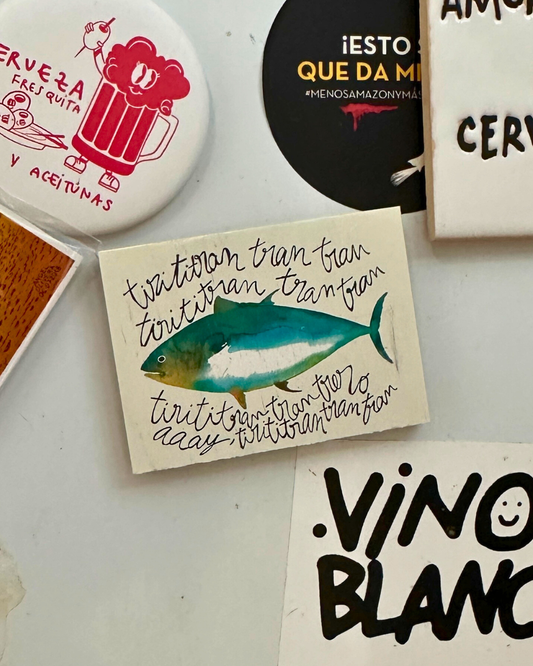 CERVEZA
FRESQUITA
Y ACEITUNAS
¡ESTO
QUE DA MI
#MENOSAMAZONYMÁS
AMOR
CERV
tirititran tran tran
tirititran tran tran
tirititran tran trero
aaay, tirititrantrantran
.ViNO
BLANC